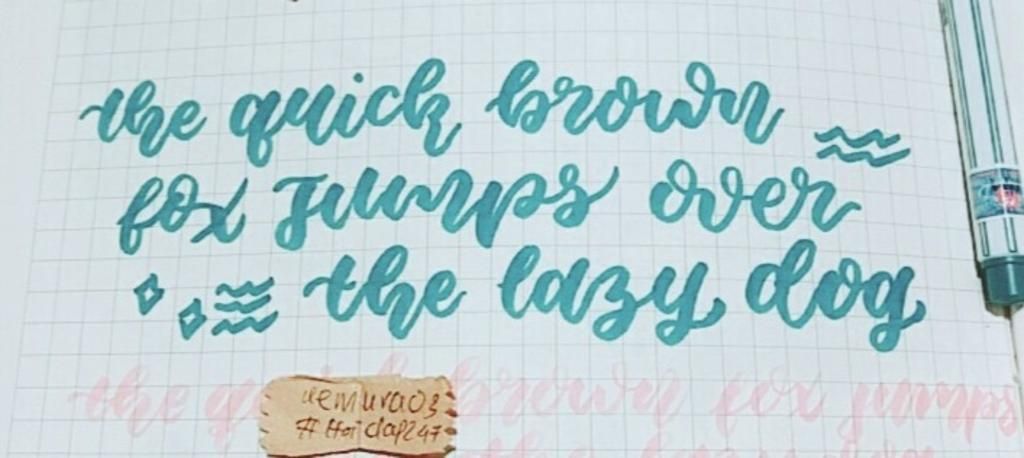 the quick brown
fox jumps over
the lazy dog
the quick brown fox jumps
the lazy dog